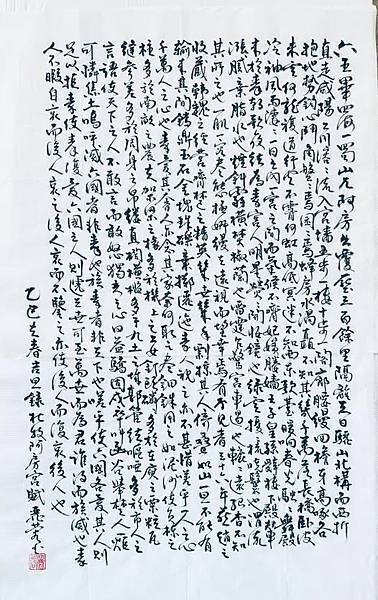 六王畢四海一蜀山兀阿房出覆壓三百餘里隔離天日驪山北構而西折
直走咸陽二川溶溶流入宮墻五步一樓十步一閣廊腰縵回檐牙高啄各
抱地勢鈎心鬥角盤盤焉囷囷焉蜂房水渦矗不知其幾千萬落長橋臥波
未雲何龍複道行空不霽何虹高低冥迷不知西東歌臺暖響春光融融舞殿
冷袖風雨淒淒一日之內一宮之間而氣候不齊妃嬪媵嬙王子皇孫辭樓下殿輦
來於秦朝歌夜絃為秦宮人明星熒熒開妝鏡也綠雲擾擾梳曉鬟也渭流
漲膩棄脂水也煙斜霧橫焚椒蘭也雷霆乍驚宮車過也轆轆遠聽杳不知
其所之也一肌一容盡態極妍縵立遠視而望幸焉有不得見者三十六年燕趙之
收藏韓魏之經營齊楚之精英幾世幾年剽掠其人倚疊如山一旦不能有
輸來其間鼎鐺玉石金塊珠礫棄擲邐迤秦人視之亦不甚惜嗟乎一人之心
千萬人之心也秦愛紛奢人亦念其家奈何取之盡錙銖用之如泥沙使負棟之
柱多於南畝之農夫架梁之椽多於機上之工女釘頭磷磷多於在庾之粟粒瓦
縫參差多於周身之帛縷直欄橫檻多於九土之城郭管弦嘔啞多於市人之
言語使天下之人不敢言而敢怒獨夫之心日益驕固戍卒叫函谷舉楚人一炬
可憐焦土嗚呼滅六國者非秦也族秦者非天下也嗟乎使六國各愛其人則
足以拒秦使秦復愛六國之人則遞三世可至萬世而為君誰得而族滅也秦
人不暇自哀而後人哀之後人哀之而不鑒之亦使後人而復哀後人也
乙巳立春吉旦錄杜牧阿房宮賦